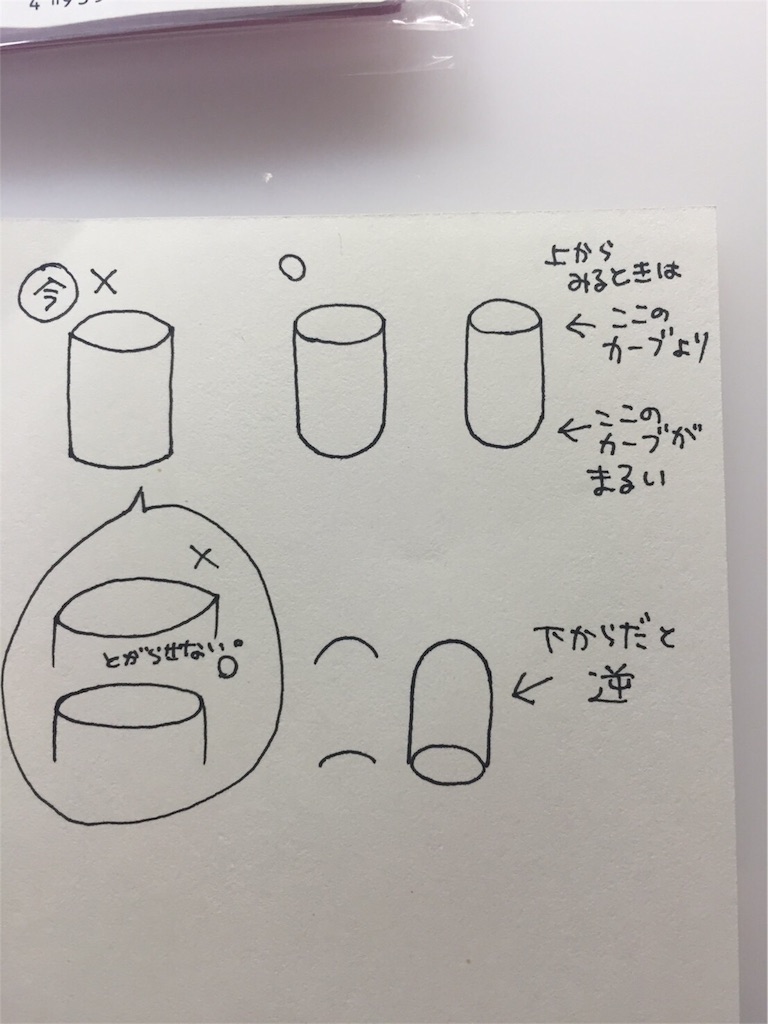 今 ×
○
上から
みるときは
← ここの
カーブより
← ここの
カーブが
まるい
×
とがらせない。
○
下からだと
← 逆